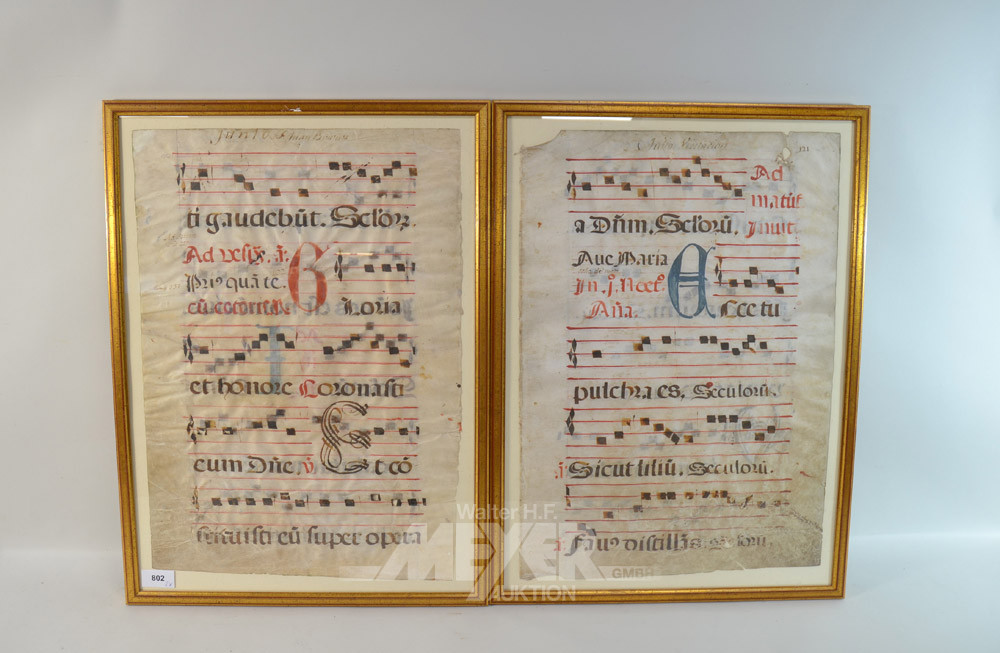 ti gaudebūt. Sclor
Ad vesp̄. ī. G
Priꝰ quā te.
Loria
et honore Coronasti
eum Dn̄e. ℣ Et cō
stituisti eū super opera
802
121
Ad
matut̄
Inuit
a Dn̄m. Sclorū.
Aue Maria
In. j. Noct̄. A
Ana.
Ecce tu
pulchra es. Seculorū.
j. Sicut liliū. Seculorū.
Fauꝰ distillās. Sclorū.
Walter H.F.
MEYER
AUKTION
GMBH